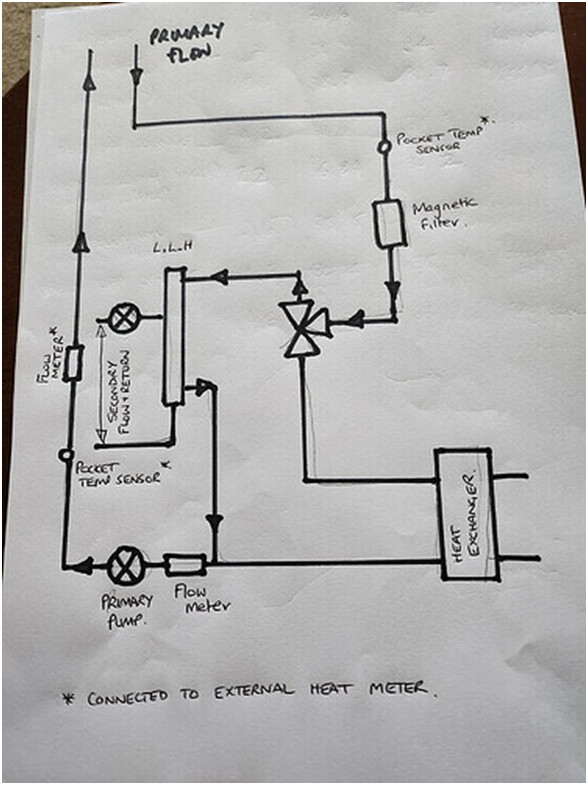 PRIMARY
FLOW
POCKET TEMP *
SENSOR
Magnetic
Filter.
L.L.H
FLOW
METER *
SECONDARY
FLOW + RETURN
POCKET *
TEMP SENSOR
HEAT
EXCHANGER.
PRIMARY
PUMP.
Flow
Meter
* CONNECTED TO EXTERNAL HEAT METER.